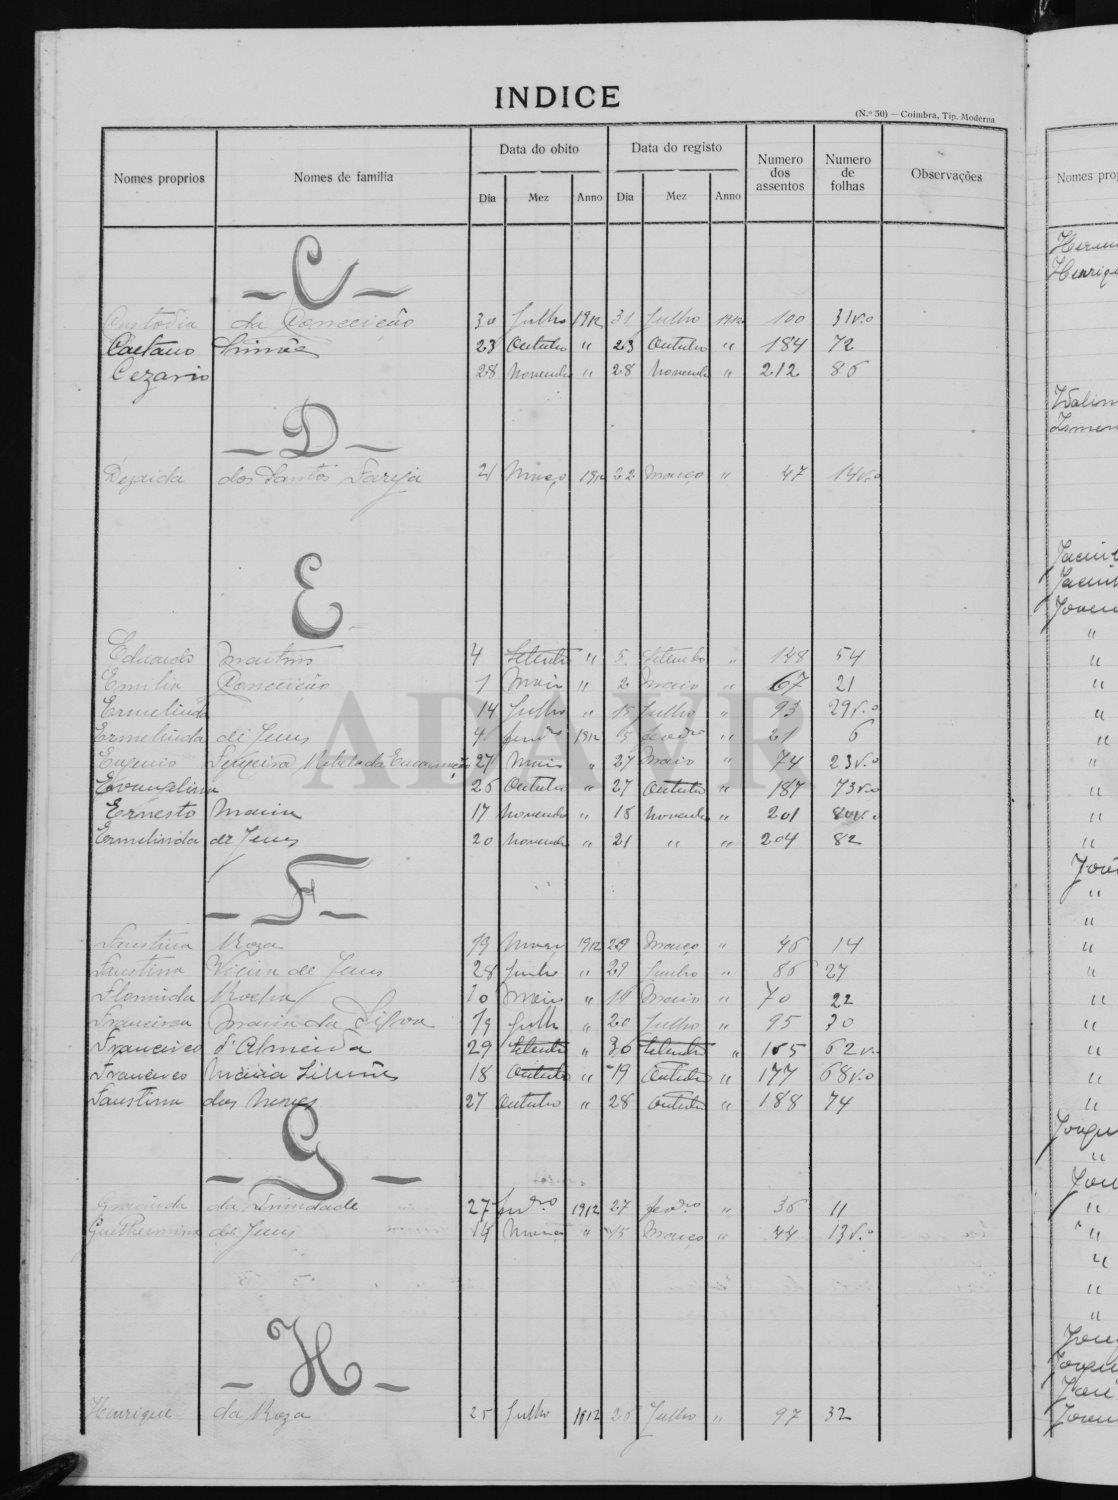 INDICE
(N.º 50) — Coimbra, Tip. Moderna
Nomes proprios Nomes de familia Data do obito Data do registo Numero dos assentos Numero de folhas Observações
Dia Mez Anno Dia Mez Anno
C
Custodia da Conceição 30 Julho 1912 31 Julho 1912 100 31 v.o
Caetano Simões 23 Outubro " 23 Outubro " 184 72
Cezario 28 Novembro " 28 Novembro " 212 86
D
dos Santos 21 Março 1912 22 Março " 47 14 v.o
E
Eduardo Martins 4 Setembro " 5 Setembro " 148 54
Emilia Conceição 1 Maio " 2 Maio " 67 21
Ermelinda 14 Julho " 15 Julho " 93 29 v.o
Ermelinda de Jesus 4 fevro 1912 5 fevdro " 21 6
Eugenio da Encarnação 27 Maio " 27 Maio " 74 23 v.o
Evangelina 26 Outubro " 27 Outubro " 187 73 v.o
Ernesto Maria 17 Novembro " 18 Novembro " 201
Ermelinda de Jesus 20 Novembro " 21 " " 204 82
F
Faustina Roza 19 Março 1912 20 Março " 46 14
Faustina Vieira de Jesus 28 Junho " 29 Junho " 86 27
Florinda Rocha 10 Maio " Maio " 70 22
Francisca Maria da Silva 19 Julho " 20 Julho " 95 30
Francisco d'Almeida 29 Setembro " 30 Setembro " 165 62 v.o
Francisco Maria Simões 18 Outubro " 19 Outubro " 177 68 v.o
Faustina das Neves 27 Outubro " 28 Outubro " 188 74
G
Gracinda da Trindade 27 fevdro 1912 27 fevdro " 36 11
Guilhermina de Jesus 14 Março " 15 Março " 44 13 v.o
H
Henrique da Roza 25 Julho 1912 26 Julho " 97 32
ADAVR